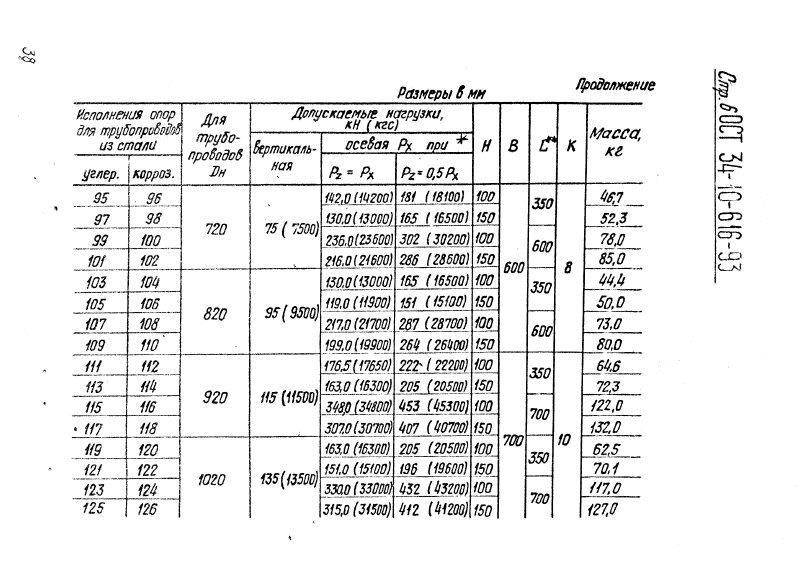 38
Стр. 6 ОСТ 34-10-616-93
Продолжение
Размеры в мм
Исполнения опор для трубопроводов из стали
Для трубопроводов Dн
Допускаемые нагрузки, кН (кгс)
H
B
L**
K
Масса, кг
вертикальная
осевая Px при *
углер. корроз.
Pz = Px
Pz = 0,5 Px
95 96 720 75 (7500) 142,0 (14200) 181 (18100) 100 600 350 8 46,7
97 98 130,0 (13000) 165 (16500) 150 52,3
99 100 236,0 (23600) 302 (30200) 100 600 78,0
101 102 216,0 (21600) 286 (28600) 150 85,0
103 104 820 95 (9500) 130,0 (13000) 165 (16500) 100 350 44,4
105 106 119,0 (11900) 151 (15100) 150 50,0
107 108 217,0 (21700) 287 (28700) 100 600 73,0
109 110 199,0 (19900) 264 (26400) 150 80,0
111 112 920 115 (11500) 176,5 (17650) 222 (22200) 100 700 350 10 64,6
113 114 163,0 (16300) 205 (20500) 150 72,3
115 116 348,0 (34800) 453 (45300) 100 700 122,0
117 118 307,0 (30700) 407 (40700) 150 132,0
119 120 1020 135 (13500) 163,0 (16300) 205 (20500) 100 350 62,5
121 122 151,0 (15100) 196 (19600) 150 70,1
123 124 330,0 (33000) 432 (43200) 100 700 117,0
125 126 315,0 (31500) 412 (41200) 150 127,0